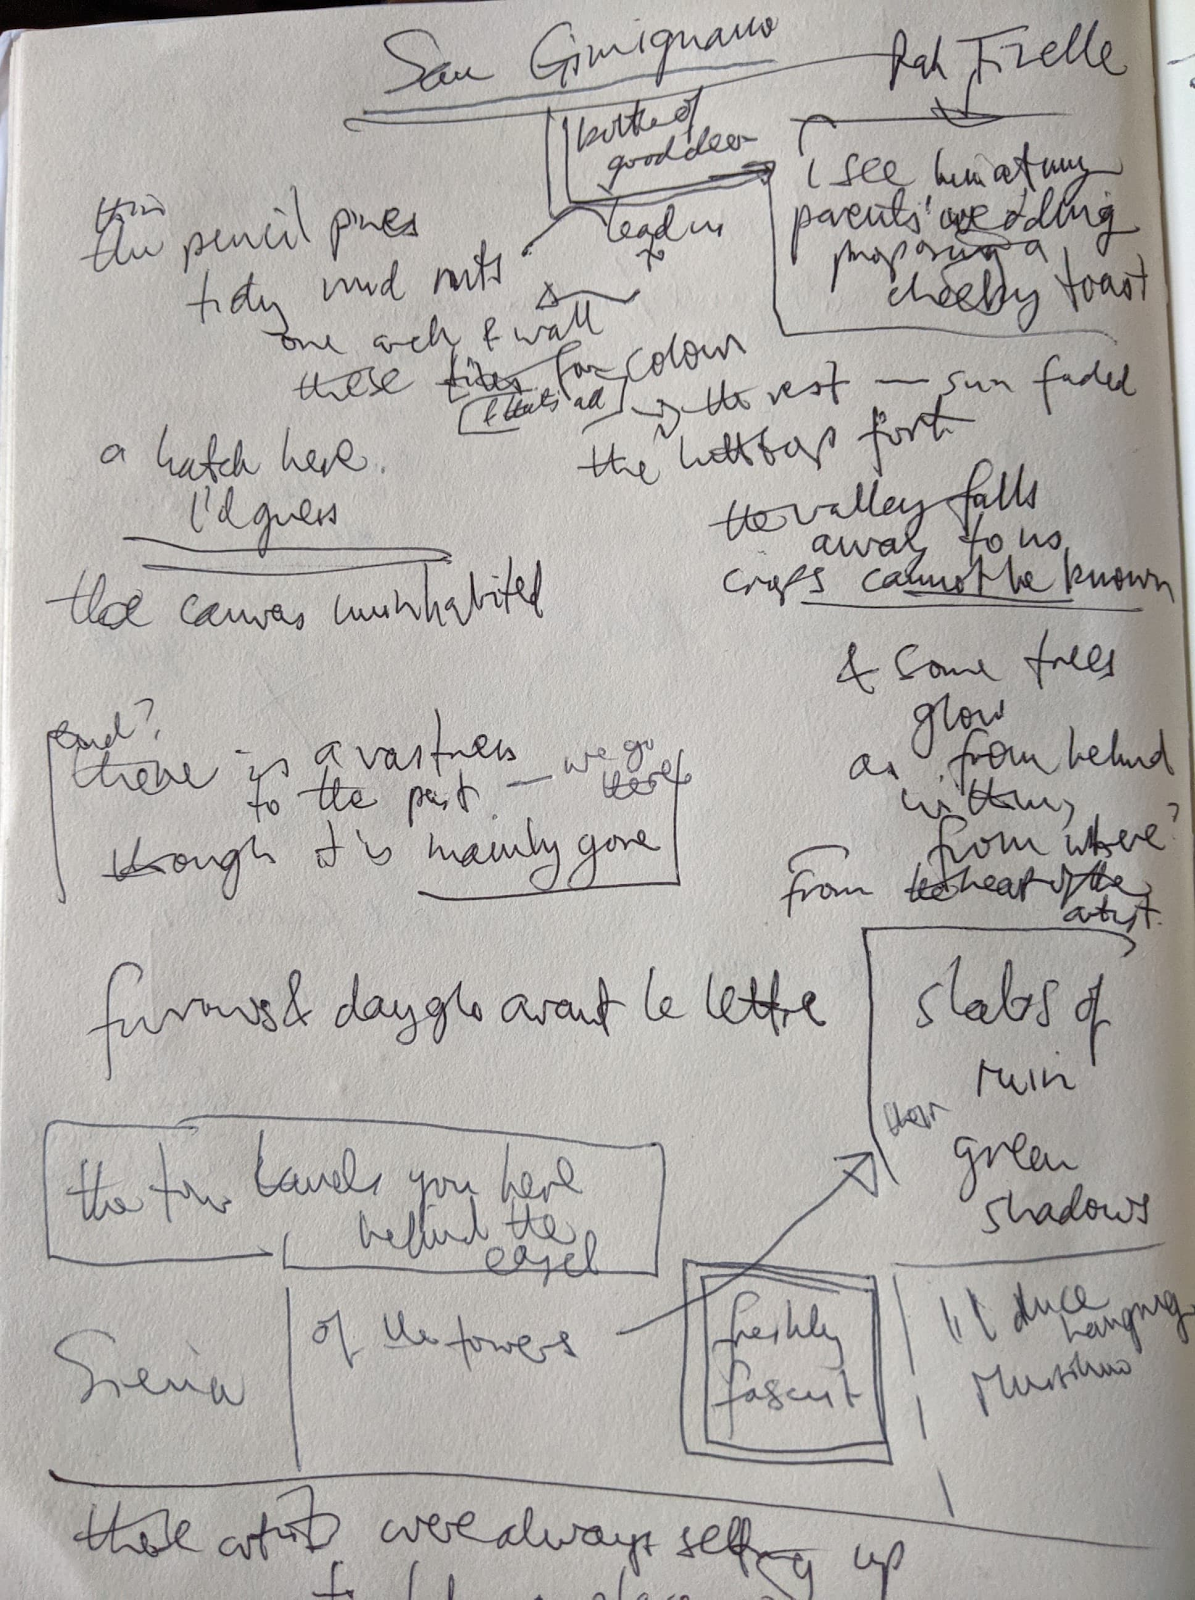 San Gimignano
thin
the pencil pines
tidy mud nuts
one arch & wall
these tiles for colour
& that's all
a hatch here.
I'd guess
the canvas uninhabited
end?
there is a vastness
to the past — we go
there
though it is mainly gone
bottle of
good cheer
lead in
i see
parents' wedding
proposing a
cheeky toast
the rest — sun faded
the hilltops forth
the valley falls
away to us
crops cannot be known
& some trees
glow
as from behind
within,
from where?
from the heart of the
artist.
furrows & dayglo avant le lettre
slabs of
ruin
their
green
shadows
the tour travels you here
behind the
easel
Siena
of the towers
freshly
fascist
il duce
hanging
Mussolini
these artists were always setting up